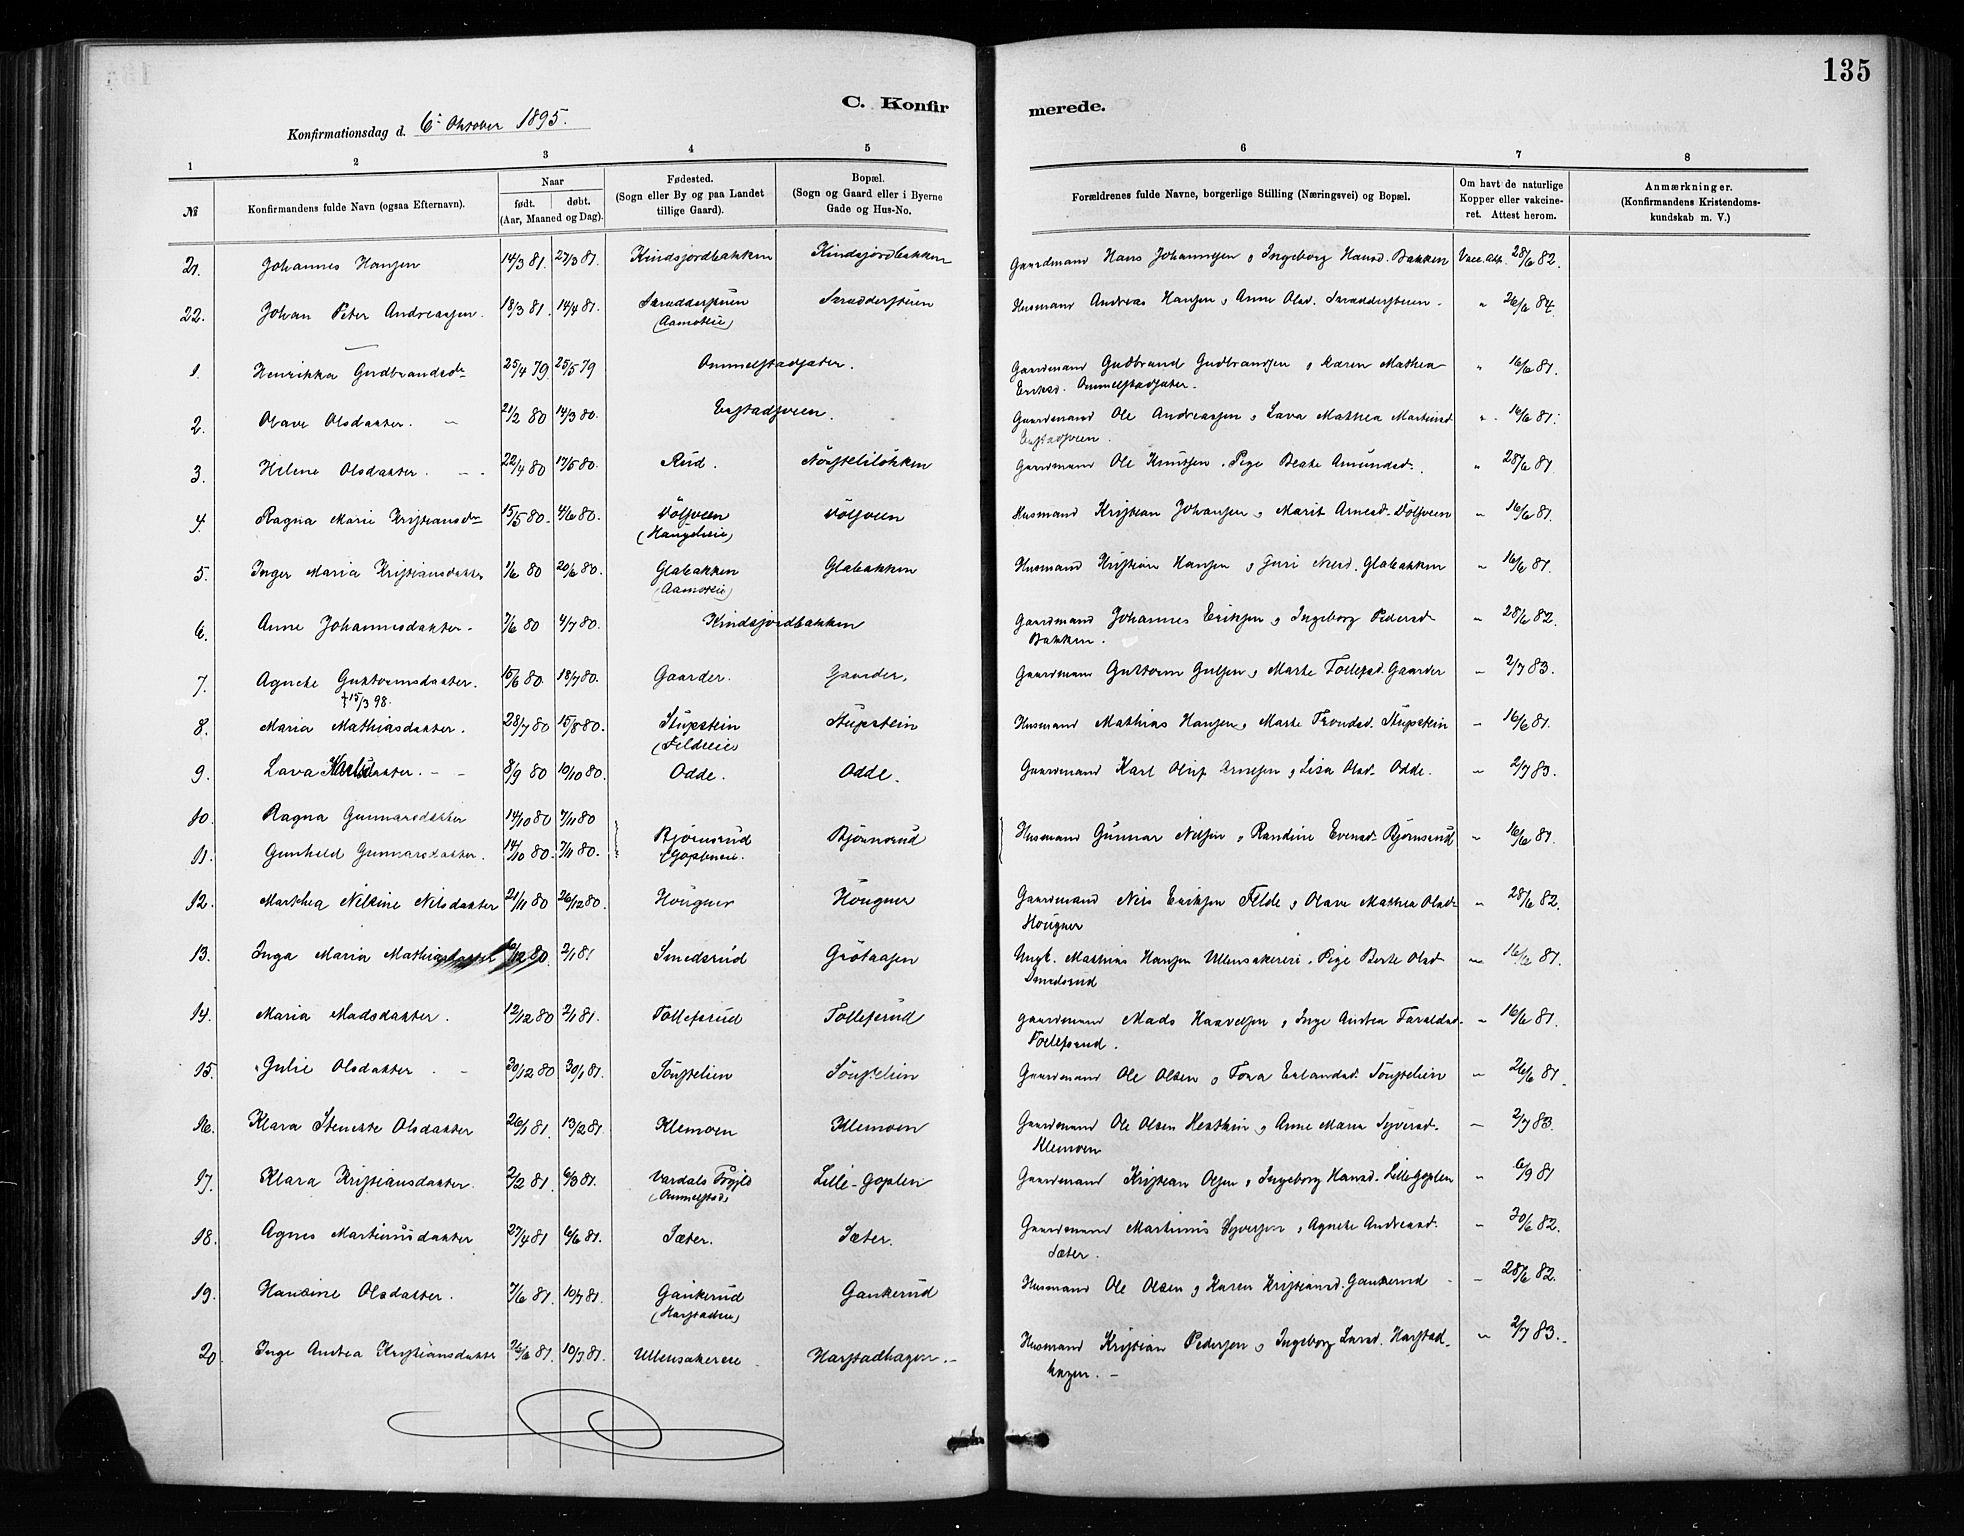 135
C. Konfir merede.
Konfirmationsdag d. 6te Oktober 1895.
1 2 3 4 5 6 7 8
№
Konfirmandens fulde Navn (ogsaa Efternavn).
Naar
født. døbt.
(Aar, Maaned og Dag).
Fødested.
(Sogn eller By og paa Landet
tillige Gaard).
Bopæl.
(Sogn og Gaard eller i Byerne
Gade og Hus-No.
Forældrenes fulde Navne, borgerlige Stilling (Næringsvei) og Bopæl.
Om havt de naturlige
Kopper eller vakcine-
ret. Attest herom.
Anmærkninger.
(Konfirmandens Kristendoms-
kundskab m. V.)
21. Johannes Hansen 14/3 81. 27/3 81. Kindsjordbakken Kindsjordbakken Gaardmand Hans Johannesen, Ingeborg Hansd. Bakken Vacc. Att. 28/6 82.
22. Johan Peter Andreassen. 18/3 81. 14/4 81. Skrædderstuen Skrædderstuen Husmand Andreas Hansen, Anne Olsd. Skrædderstuen. " 26/6 84.
(Aamoteie)
1. Henrikka Gudbrandsdr 25/4 79. 25/5 79 Ommelstadsæter. Gaardmand Gudbrand Gudbrandsen, Karen Mathea " 16/6 81.
Eriksd. Ommelstadsæter.
2. Olave Olsdatter. 21/2 80 14/3 80. Gaardmand Ole Andreassen, Lava Mathea Martinsd " 16/6 81.
3. Helene Olsdatter. 22/4 80 17/5 80. Rud. Gaardmand Ole Knutsen. Pige Beate Amundsd. " 28/6 81.
4. Ragna Marie Kristiansdr 15/5 80. 4/6 80. Volsveen Volsveen Husmand Kristian Johansen, Marit Arnesd. Volsveen " 16/6 81.
5. Inger Maria Kristiansdatter 1/6 80 20/6 80. Glabakken Glabakken Husmand Kristian Hansen, Guri Nilsd. Glabakken " 16/6 81.
(Aamoteie)
6. Anne Johannesdatter. 7/6 80 4/7 80. Kindsjordbakken Gaardmand Johannes Eriksen, Ingeborg Pedersd. " 28/6 82.
Bakken.
7. Agnete Guttormsdatter. 15/6 80. 18/7 80. Gaarder. Gaarder. Gaardmand Guttorm Gulsen, Marte Tollefsd. Gaarder " 2/7 83.
† 15/3 98.
8. Maria Mathiasdatter. 28/7 80 15/8 80. Stupstein Stupstein Husmand Mathias Hansen, Marte Trondsd. Stupstein " 16/6 81.
(Feldeeie
9. Lava Karlsdatter. 8/9 80 10/10 80. Odde. Odde. Gaardmand Karl Oluf Arnesen, Lisa Olsd. Odde. " 2/7 83.
10. Ragna Gunnarsdatter 14/10 80 7/11 80
11. Gunhild Gunnarsdatter. 14/10 80. 7/11 80. Bjørnsrud Bjørnsrud Husmand Gunnar Nilsen, Randine Evensd. Bjørnsrud " 16/6 81.
12. Marthea Nilsine Nilsdatter 21/11 80 26/12 80. Hougner Hougner Gaardmand Nils Eriksen Felde, Olave Mathea Olsd. " 28/6 82.
Hougner
13. Inga Maria Mathiasdatter 10/12 80. 2/1 81 Smedsrud Grotaasen Ungk. Mathias Hansen Ullensakereie. Pige Berte Olsd. " 16/6 81.
Smedsrud
14. Maria Madsdatter. 12/12 80 2/1 81. Tollefsrud Tollefsrud Gaardmand Mads Haavelsen, Inge Andrea Faraldsd. " 16/6 81.
Tollefsrud.
15. Julie Olsdatter. 30/12 80 30/1 81. Søustelien Søustelien Gaardmand Ole Olsen, Tora Erlandsd. Søustelien " 26/6 81.
16. Klara Stenette Olsdatter 26/1 81. 13/2 81. Klemoen Klemoen Gaardmand Ole Olsen, Anne Maria Syversd. " 2/7 83.
Klemoen
17. Klara Kristiansdatter. 2/2 81. 6/3 81. Vardals Lille-Goplen Gaardmand Kristian Olsen, Ingeborg Hansd. Lille Goplen " 6/9 81
(Ommelstad)
18. Agnes Martinusdatter 27/4 81 6/6 81. Sæter. Sæter. Gaardmand Martinus Syversen, Agnete Andreasd. " 30/6 82.
Sæter.
19. Hansine Olsdatter. 7/6 81. 10/7 81. Gaukerud Gaukerud Husmand Ole Olsen, Karen Kristiansd. Gaukerud " 28/6 82.
(Harstadeie)
20. Inge Andrea Kristiansdatter 26/6 81. 10/7 81. Ullensakereie. Harstadhagen. Husmand Kristian Pedersen, Ingeborg Larsd. Harstad- " 2/7 83.
hagen.